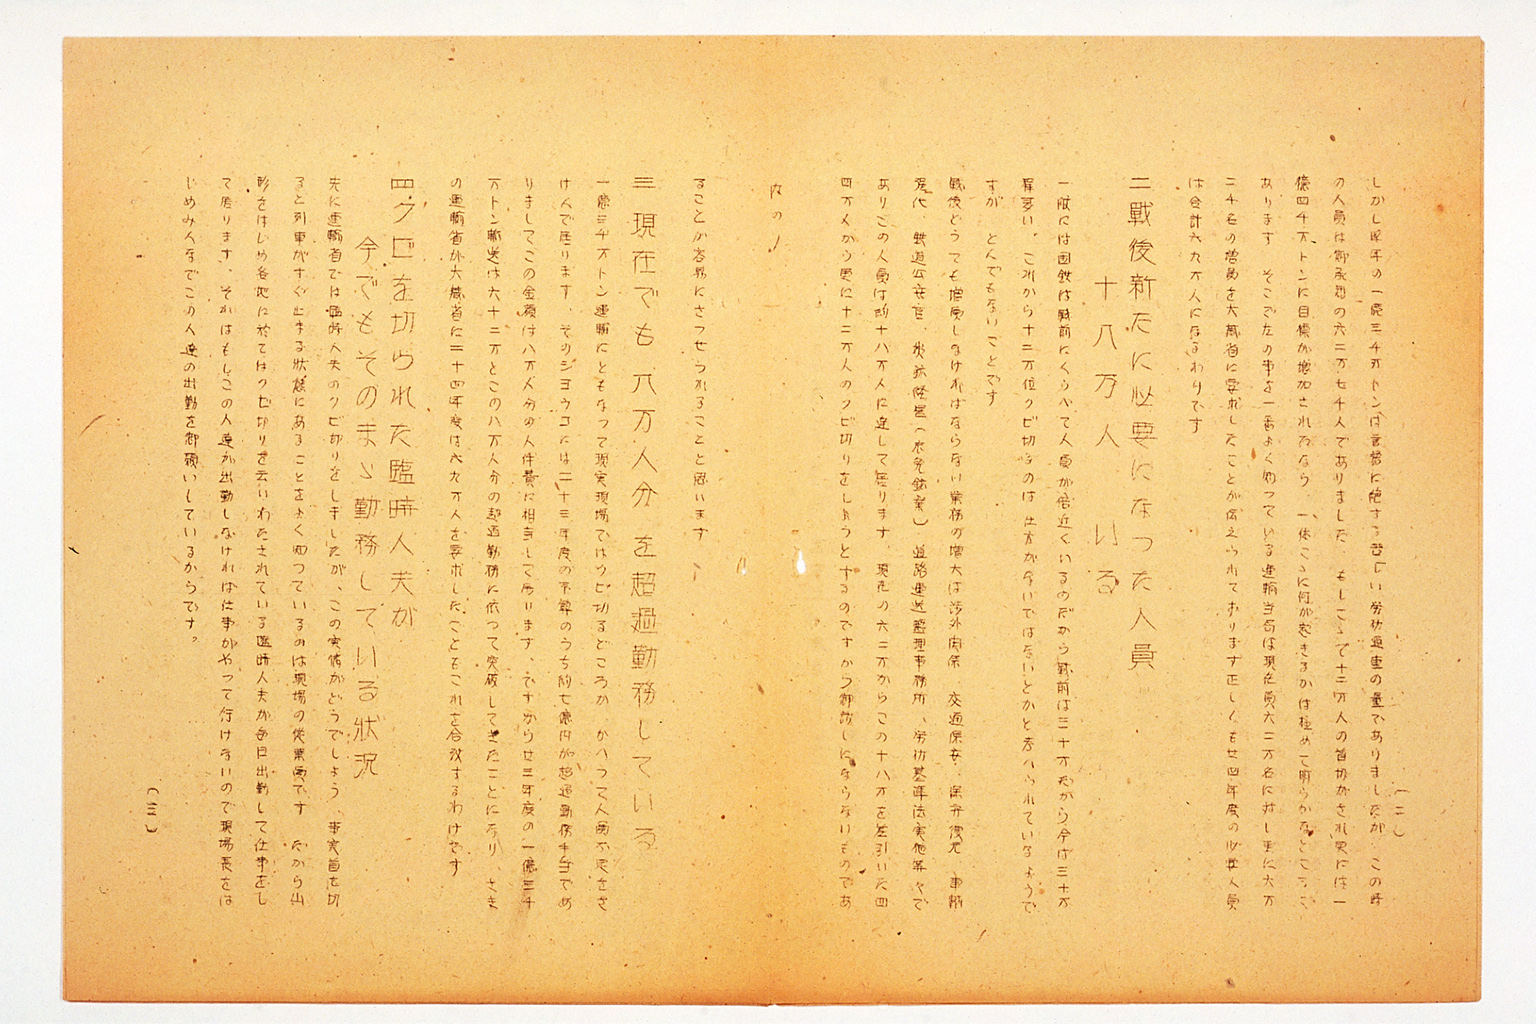 (二)
しかし昨年の一億三千万トンは言語に絶する苦しい労仂過重の量でありましたが この時
の人員は御承知の六二万七千人でありました もしこゝで十二万人の首切がされ更には一
億四千万トンに目標が増加されたなら、一体こゝに何が起きるかは極めて明らかなところで
あります そこで左の事を一番よく知つている運輸当局は現在員六二万名に対し更に六万
二千名の増員を大蔵省に要求したことが伝えられております正しくも廿四年度の必要人員
は合計六九万人になるわけです
二 戦後新たに必要になった人員
十八万人いる
一般には国鉄は戦前にくらべて人員が倍近くいるのだから戦前は三十万だから今は六十万
程多い、これから十二万位クビ切るのは 仕方がないではないかと考へられているようで
すが、とんでもないことです
戦後どうしても増員しなければならない業務の増大は渉外関係、交通保安、保守復元、車輌
現代 鉄道公安官、炭鉱経営(志免鉱業)道路運送監理事務所、労仂基準法実施等々で
ありこの人員は約十八万人に達して居ります、現在の六二万からこの十八万を差引いた四
四万人から更に十二万人のクビ切りをしようとするのですから御話しにならないものであ
なの/
ることが容易にさつせられることと思います
三 現在でも八万人分を超過勤務している
一億三千万トン運輸にともなって現実現場ではクビ切るどころか、かへって人員不足をさ
けんで居ります、そのシヨウコには二十三年度の予算のうち約七億円が超過勤務手当であ
りましてこの金額は八万人分の人件費に相当して居ります、ですから廿三年度の一億三千
万トン輸送は六十二万とこの八万人分の超過勤務に依つて突破してきたことになり、さき
の運輸省が大蔵省に二十四年度は六九万人を要求したこともこれを合致するわけです
四 クビを切られた臨時人夫が
今でもそのまゝ勤務している状況
先に運輸省では臨時人夫のクビ切りをしましたが、この実情がどうでしよう、事実首を切
ると列車がすぐ止まる状態にあることをよく知つているのは現場の従業員です だから山
形をはじめ各地に於てはクビ切りを云いわたされている臨時人夫が毎日出勤して仕事をし
て居ります、それはもしこの人達が出勤しなければ仕事がやって行けないので現場長をは
じめみんなでこの人達の出勤を御願いしているからです。
(三)